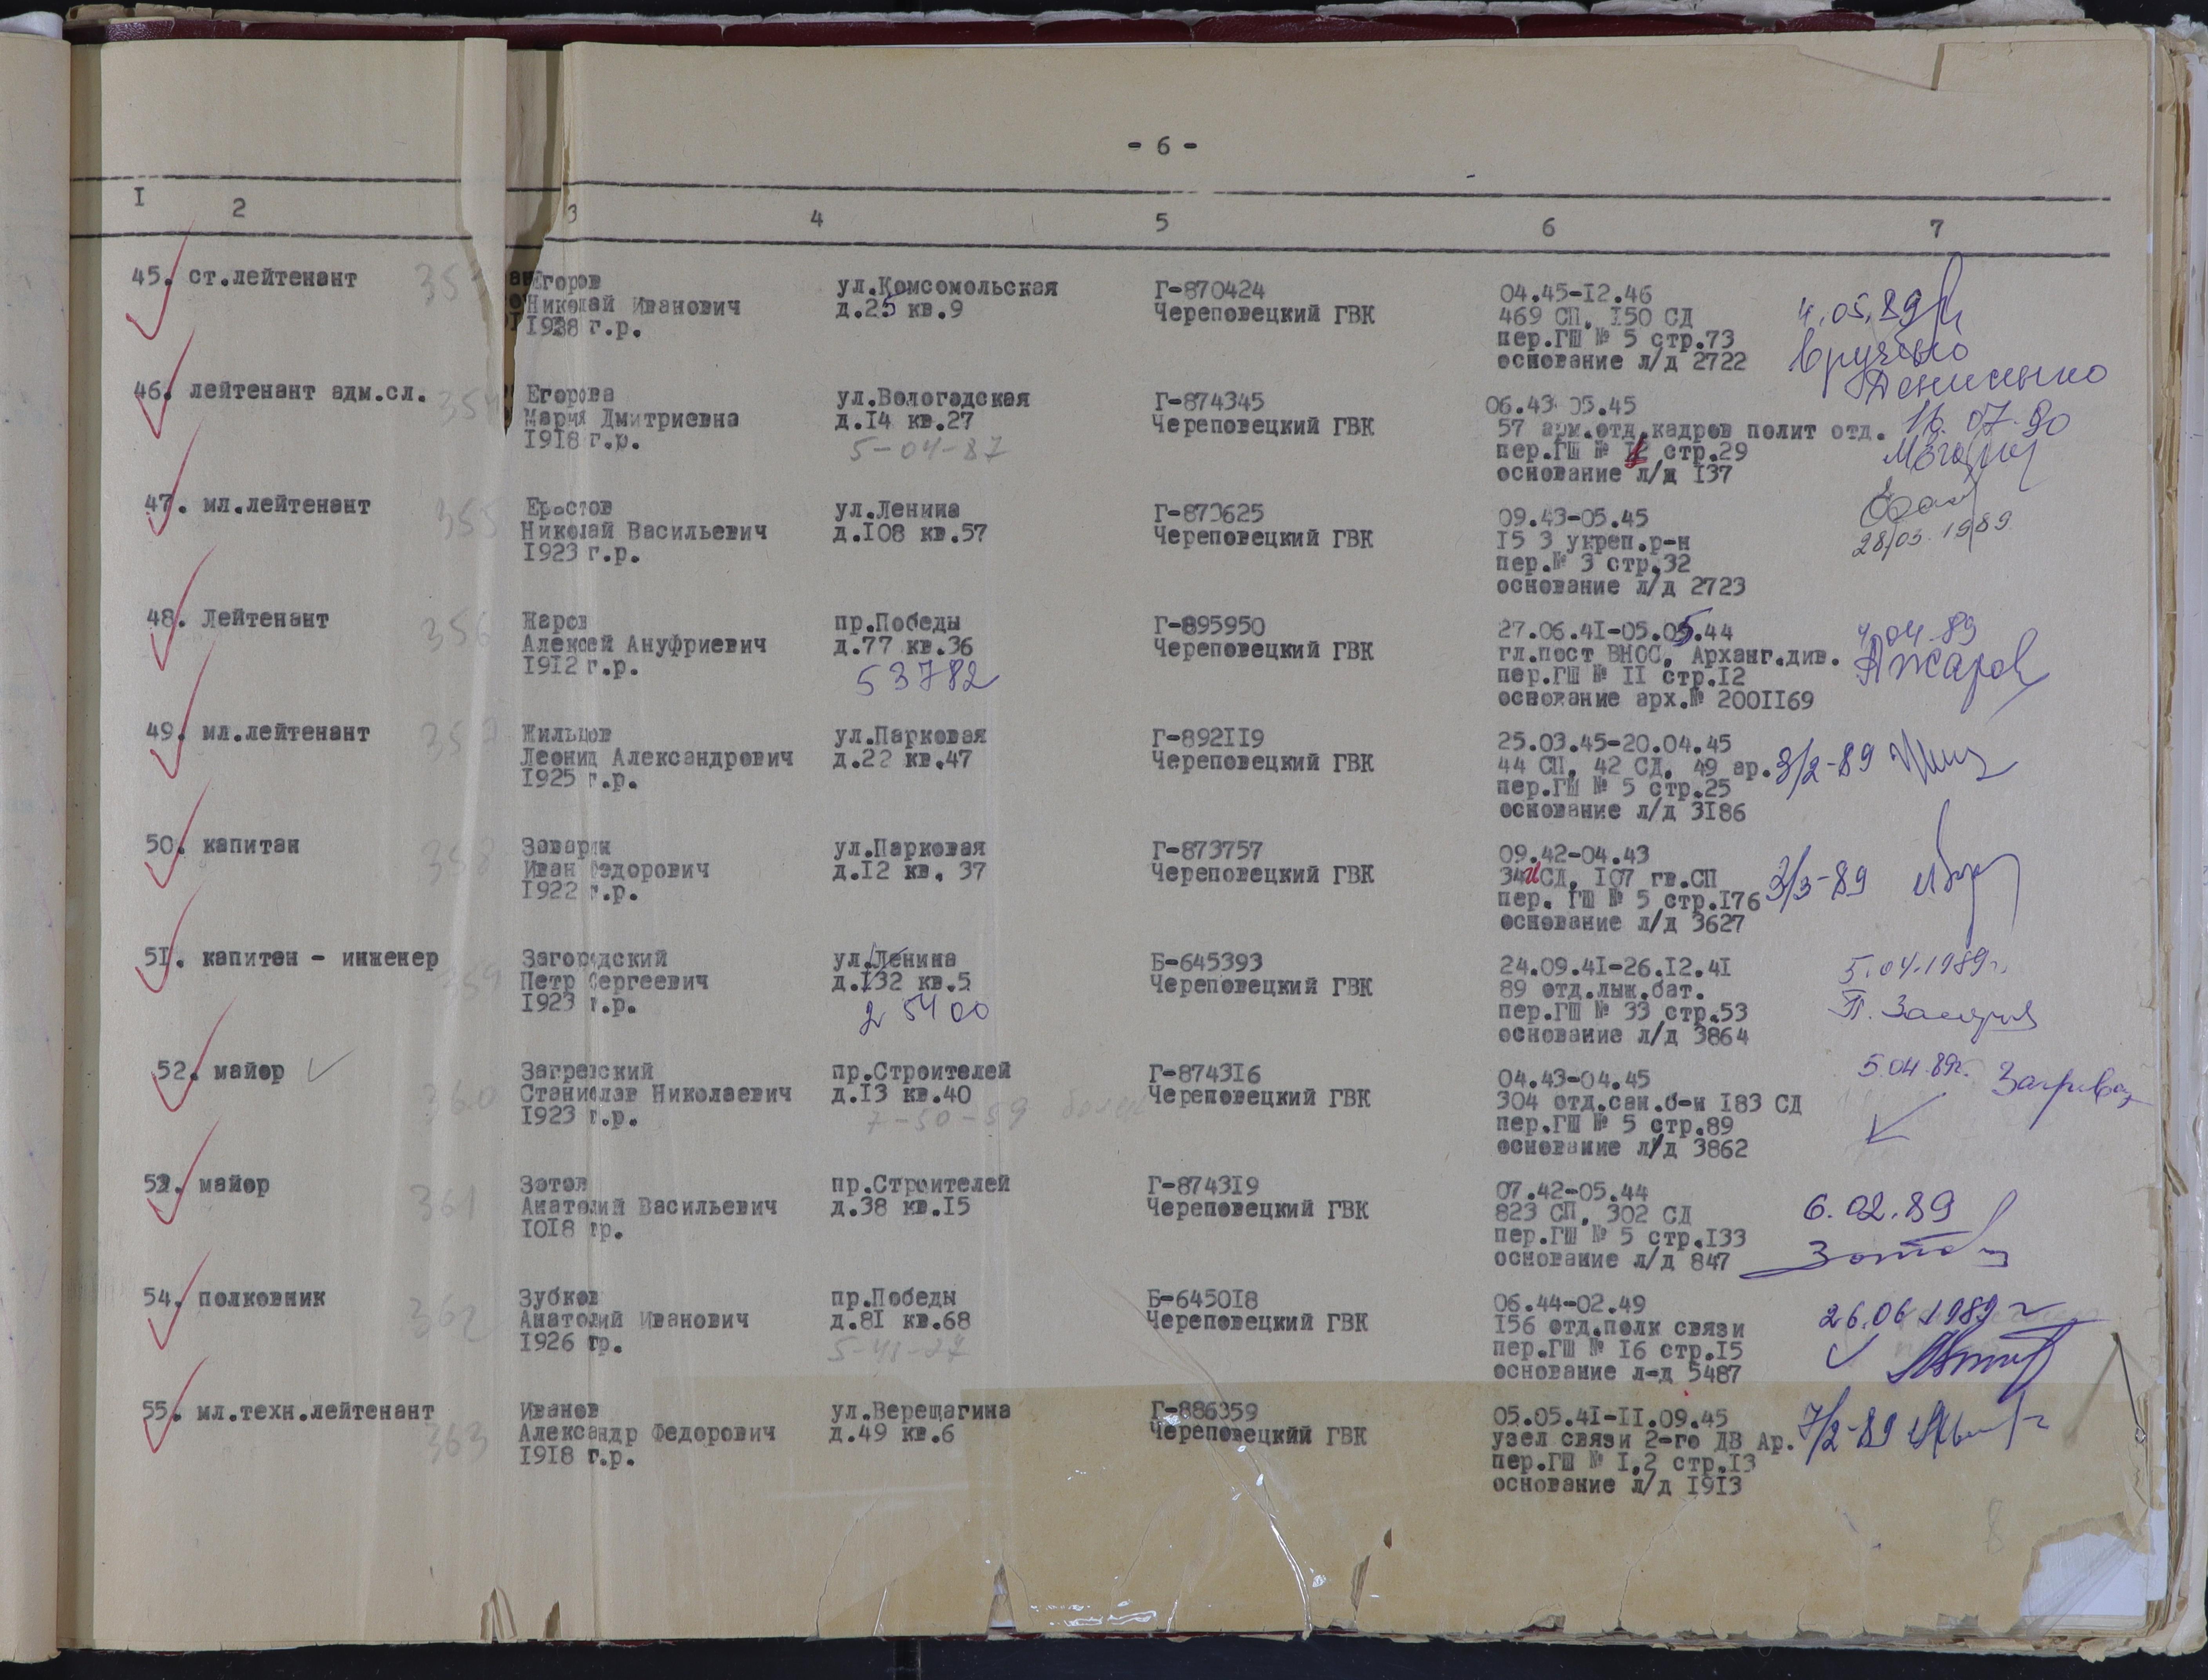 - 6 -
I 2 3 4 5 6 7
45. ст.лейтенант
Егоров
Николай Иванович
1928 г.р.
ул.Комсомольская
д.25 кв.9
Г-870424
Череповецкий ГВК
04.45-I2.46
469 СП, I50 СД
пер.ГШ № 5 стр.73
основание л/д 2722
4.05.89
вручено
Денисенко
46. лейтенант адм.сл.
354
Егорова
Мария Дмитриевна
I9I8 г.р.
ул.Вологодская
д.I4 кв.27
5-04-87
Г-874345
Череповецкий ГВК
06.43 05.45
57 арм.отд.кадров полит отд.
пер.ГШ № стр.29
основание л/д I37
16.07.90
47. мл.лейтенант
355
Еростов
Николай Васильевич
I923 г.р.
ул.Ленина
д.I08 кв.57
Г-870625
Череповецкий ГВК
09.43-05.45
I5 3 укреп.р-н
пер.№ 3 стр.32
основание л/д 2723
28/03.1989
48. Лейтенант
356
Жаров
Алексей Ануфриевич
I9I2 г.р.
пр.Победы
д.77 кв.36
53782
Г-895950
Череповецкий ГВК
27.06.4I-05.05.44
гл.пост ВНОС, Арханг.див.
пер.ГШ № II стр.I2
основание арх.№ 200II69
4.04-89
АЖаров
49. мл.лейтенант
357
Жильцов
Леонид Александрович
I925 г.р.
ул.Парковая
д.22 кв.47
Г-892II9
Череповецкий ГВК
25.03.45-20.04.45
44 СП, 42 СД, 49 ар.
пер.ГШ № 5 стр.25
основание л/д 3I86
3/2-89
50. капитан
358
Заварин
Иван Федорович
I922 г.р.
ул.Парковая
д.I2 кв. 37
Г-873757
Череповецкий ГВК
09.42-04.43
СД, I07 гв.СП
пер. ГШ № 5 стр.I76
основание л/д 3627
3/3-89
5I. капитан - инженер
359
Загородский
Петр Сергеевич
I923 г.р.
ул.Ленина
д.I32 кв.5
2 54 00
Б-645393
Череповецкий ГВК
24.09.4I-26.I2.4I
89 отд.лыж.бат.
пер.ГШ № 33 стр.53
основание л/д 3864
5.04.1989г.
52. майор
360
Загревский
Станислав Николаевич
I923 г.р.
пр.Строителей
д.I3 кв.40
7-50-59
Г-8743I6
Череповецкий ГВК
04.43-04.45
304 отд.сан.б-н I83 СД
пер.ГШ № 5 стр.89
основание л/д 3862
5.04.89г.
53. майор
361
Зотов
Анатолий Васильевич
I0I8 гр.
пр.Строителей
д.38 кв.I5
Г-8743I9
Череповецкий ГВК
07.42-05.44
823 СП, 302 СД
пер.ГШ № 5 стр.I33
основание л/д 847
6.02.89
Зотов
54. полковник
362
Зубков
Анатолий Иванович
I926 гр.
пр.Победы
д.8I кв.68
Б-6450I8
Череповецкий ГВК
06.44-02.49
I56 отд.полк связи
пер.ГШ № I6 стр.I5
основание л-д 5487
26.06.1989 г
55. мл.техн.лейтенант
363
Иванов
Александр Федорович
I9I8 г.р.
ул.Верещагина
д.49 кв.6
Г-886359
Череповецкий ГВК
05.05.4I-II.09.45
узел связи 2-го ДВ Ар.
пер.ГШ № I,2 стр.I3
основание л/д I9I3
7/2-89
8